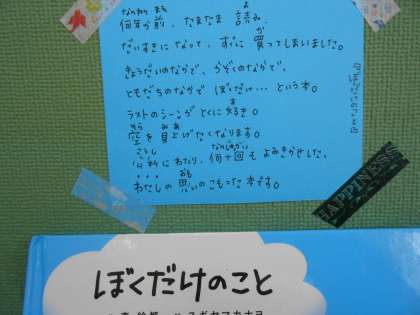 何年か前、たまたま 読み、
だいすきになって、すぐに 買ってしまいました。
きょうだいのなかで、かぞくのなかで、
ともだちのなかで ぼくだけ…という本。
ラストのシーンが とくに 好き。
空を見上げたくなります。
わたり、何十回も よみきかせした、
わたしの思いのこもった本です。
HAPPINESS
ぼくだけのこと